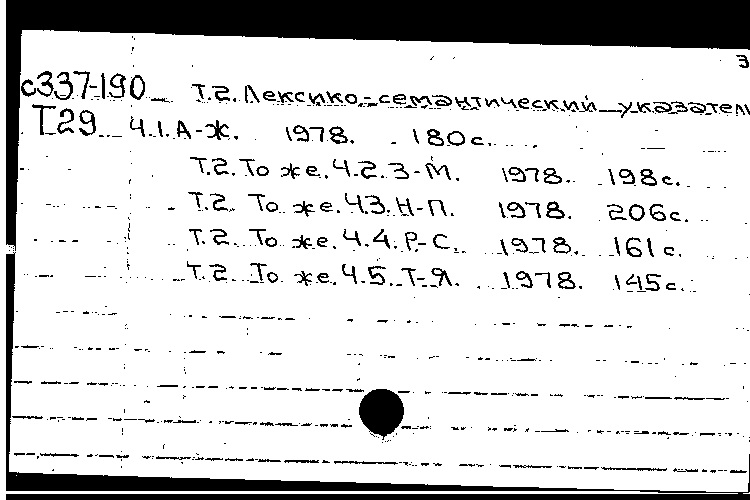 3
с337-190 Т.2. Лексико-семантический указатель
Т29 Ч.1. А-Ж. 1978. 180с.
Т.2. То же. Ч.2. З-М. 1978. 198с.
Т.2. То же. Ч.3. Н-П. 1978. 206с.
Т.2. То же. Ч.4. Р-С. 1978. 161с.
Т.2. То же. Ч.5. Т-Я. 1978. 145с.